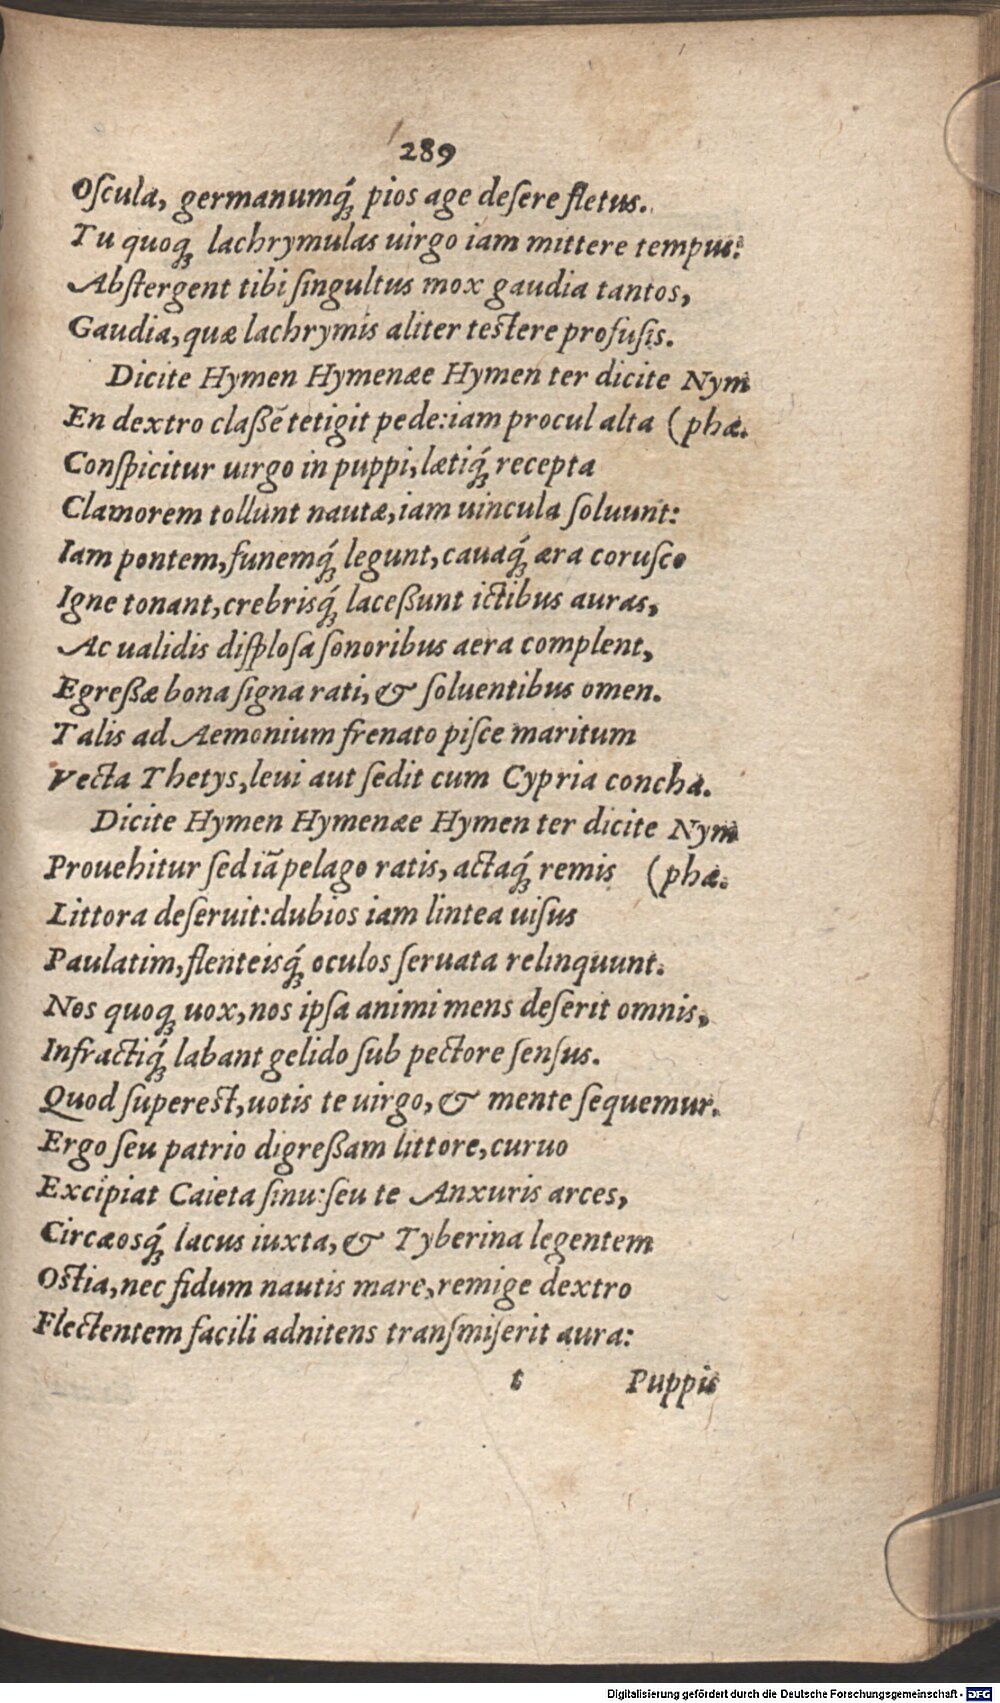 289
Oſcula, germanumq́; pios age deſere fletus.
Tu quoq; lachrymulas uirgo iam mittere tempus:
Abſtergent tibi ſingultus mox gaudia tantos,
Gaudia, quæ lachrymis aliter teſtere profuſis.
Dicite Hymen Hymenæe Hymen ter dicite Nym
En dextro claßẽ tetigit pede: iam procul alta (phæ.
Conſpicitur uirgo in puppi, lætiq́; recepta
Clamorem tollunt nautæ, iam uincula ſoluunt:
Iam pontem, funemq́; legunt, cauaq́; æra coruſco
Igne tonant, crebrisq́; laceßunt ictibus auras,
Ac ualidis diſploſa ſonoribus aera complent,
Egreßæ bona ſigna rati, & ſoluentibus omen.
Talis ad Aemonium frenato piſce maritum
Vecta Thetys, leui aut ſedit cum Cypria concha.
Dicite Hymen Hymenæe Hymen ter dicite Nym
Prouehitur ſed iã pelago ratis, actaq́; remis (phæ.
Littora deſeruit: dubios iam lintea uiſus
Paulatim, flenteisq́; oculos ſeruata relinquunt.
Nos quoq; uox, nos ipſa animi mens deſerit omnis,
Infractiq́; labant gelido ſub pectore ſenſus.
Quod ſupereſt, uotis te uirgo, & mente ſequemur.
Ergo ſeu patrio digreßam littore, curuo
Excipiat Caieta ſinu: ſeu te Anxuris arces,
Circæosq́; lacus iuxta, & Tyberina legentem
Oſtia, nec fidum nautis mare, remige dextro
Flectentem facili adnitens tranſmiſerit aura:
t Puppis
Digitalisierung gefördert durch die Deutsche Forschungsgemeinschaft - DFG